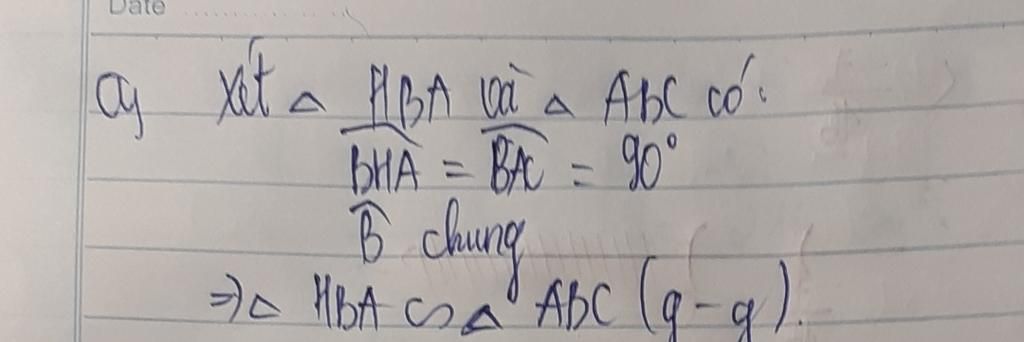 Date
a) Xét △ HBA và △ ABC có:
$\widehat{BHA}$ = $\widehat{BAC}$ = 90°
$\widehat{B}$ chung
⇒ △ HBA ∽ △ ABC (g-g).